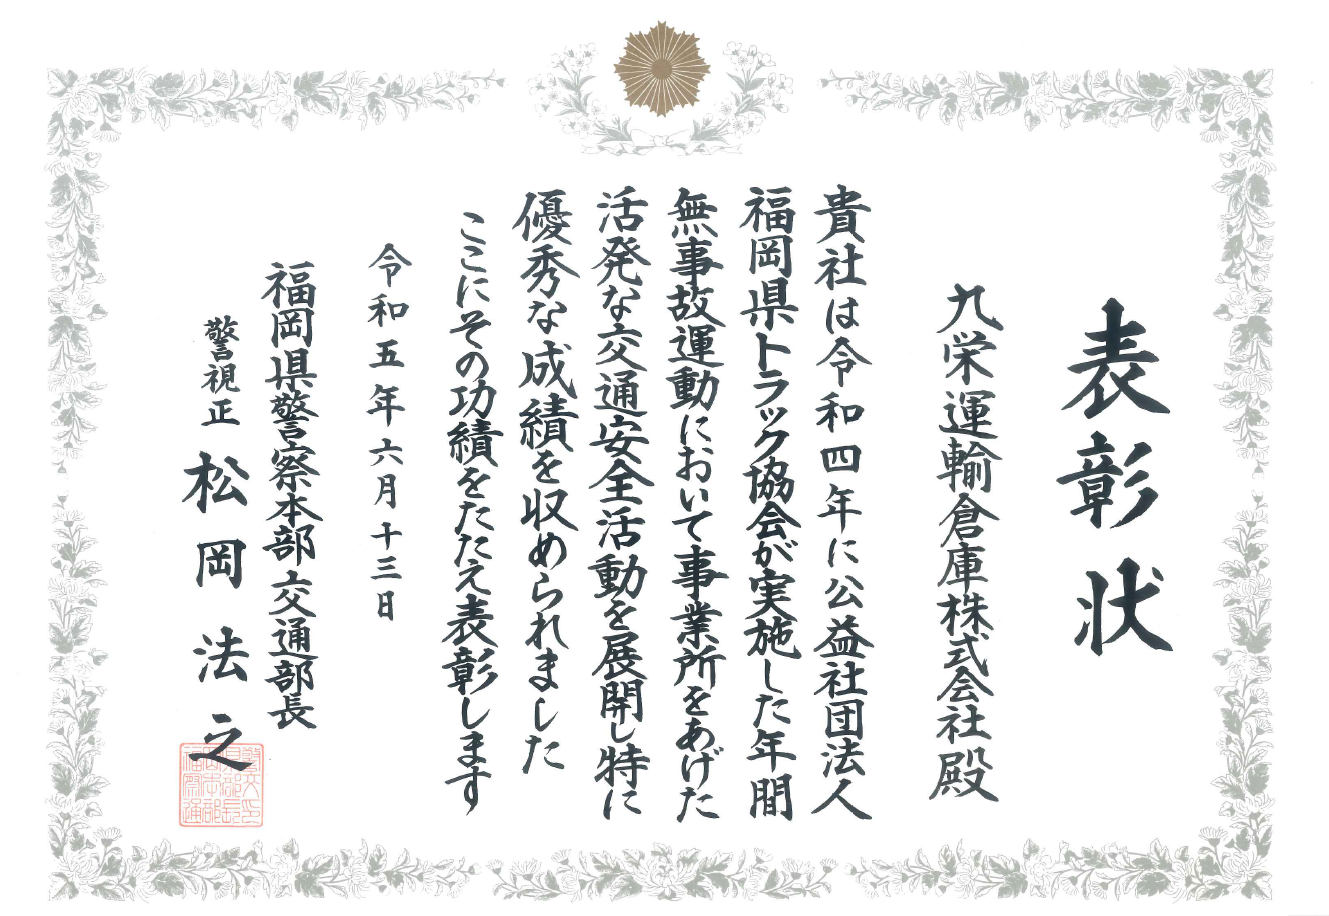 表彰状
九栄運輸倉庫株式会社殿
貴社は令和四年に公益社団法人
福岡県トラック協会が実施した年間
無事故運動において事業所をあげた
活発な交通安全活動を展開し特に
優秀な成績を収められました
ここにその功績をたたえ表彰します
令和五年六月十三日
福岡県警察本部交通部長
警視正 松岡法之